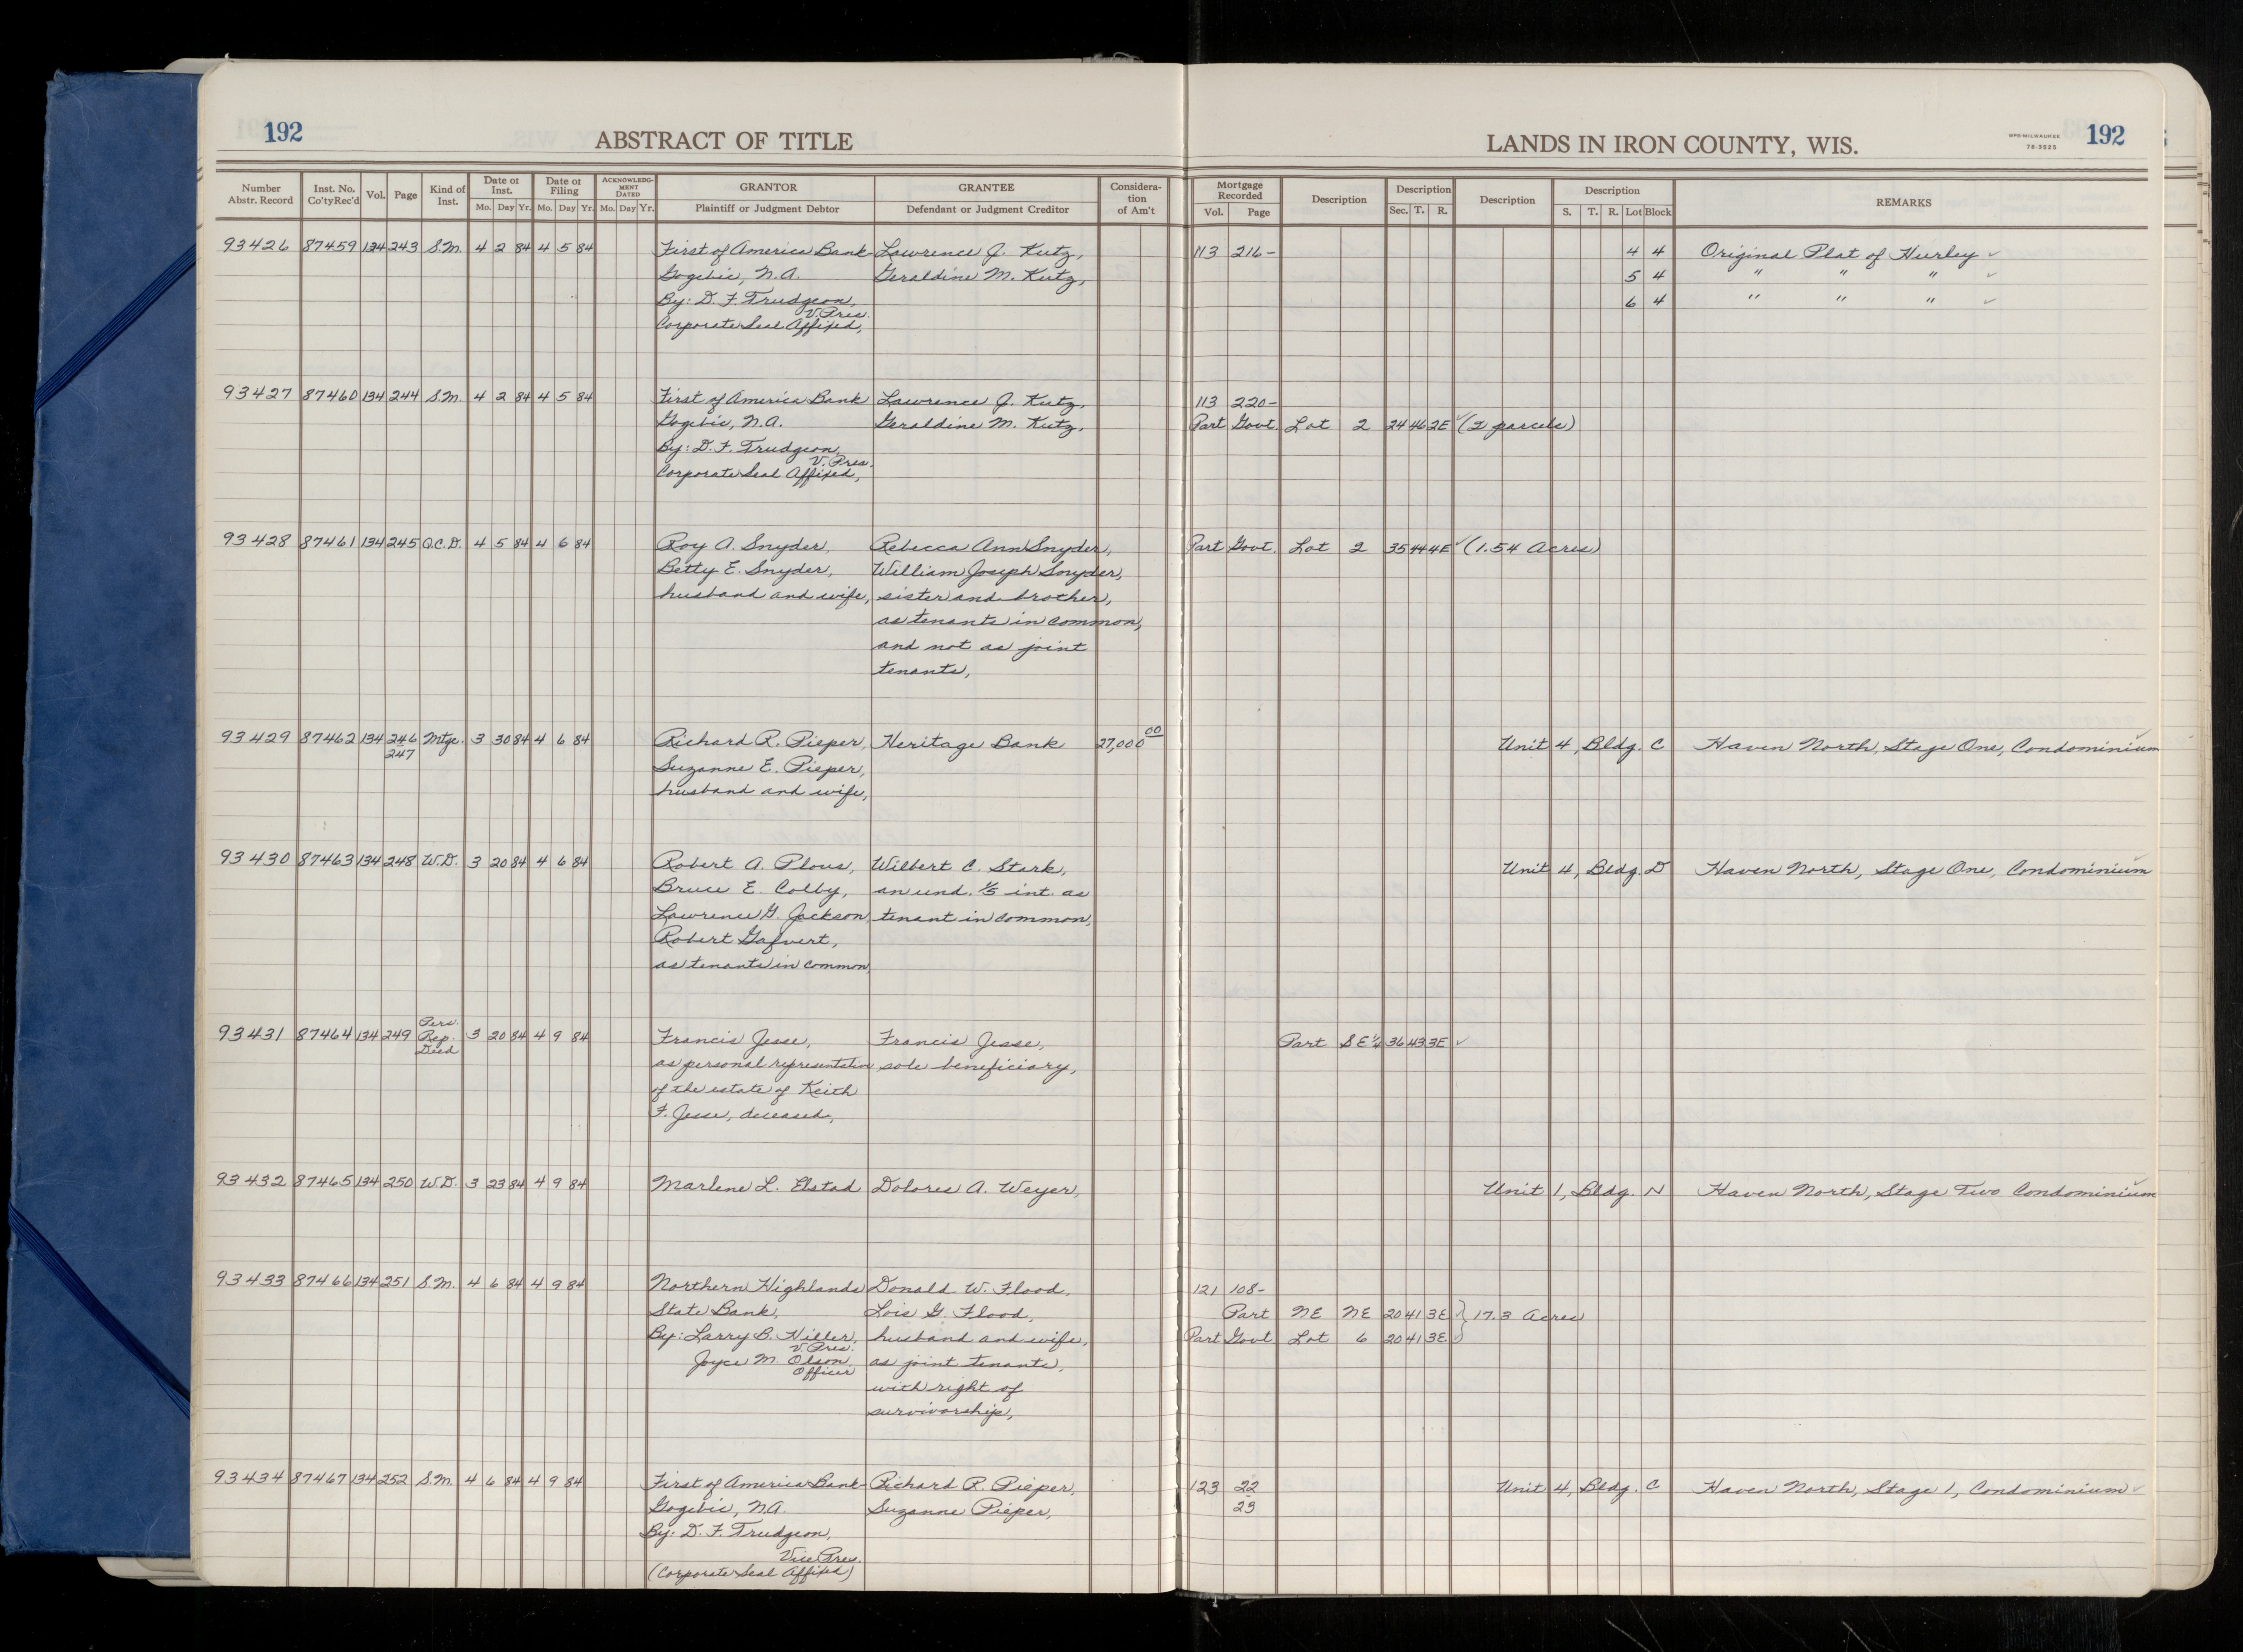 192
ABSTRACT OF TITLE
LANDS IN IRON COUNTY, WIS.
MPB-MILWAUKEE
78-3525
192
Number Abstr. Record
Inst. No. Co'ty Rec'd
Vol.
Page
Kind of Inst.
Date of Inst. Mo. Day Yr.
Date of Filing Mo. Day Yr.
ACKNOWLEDG-MENT DATED Mo. Day Yr.
GRANTOR Plaintiff or Judgment Debtor
GRANTEE Defendant or Judgment Creditor
Considera-tion of Am't
Mortgage Recorded Vol. Page
Description
Description Sec. T. R.
Description
Description S. T. R. Lot Block
REMARKS
93426 87459 134 243 S.M. 4 2 84 4 5 84 First of America Bank- Lawrence J. Kutz, 113 216- 4 4 Original Plat of Hurley ✓
Gogebic, N.A. Geraldine M. Kutz, 5 4 " " " ✓
By: D. F. Trudgeon, 6 4 " " " ✓
V. Pres.
Corporate Seal Affixed,
93427 87460 134 244 S.M. 4 2 84 4 5 84 First of America Bank Lawrence J. Kutz, 113 220-
Gogebic, N.A. Geraldine M. Kutz, Part Govt. Lot 2 24 46 2E ✓ (2 parcels)
By: D. F. Trudgeon,
V. Pres.
Corporate Seal Affixed,
93428 87461 134 245 Q.C.D. 4 5 84 4 6 84 Roy A. Snyder, Rebecca Ann Snyder, Part Govt. Lot 2 35 44 4E ✓ (1.54 Acres)
Betty E. Snyder, William Joseph Snyder,
husband and wife, sister and brother,
as tenants in common,
and not as joint
tenants,
93429 87462 134 246 Mtge. 3 30 84 4 6 84 Richard R. Pieper, Heritage Bank 27,000 00 Unit 4, Bldg. C Haven North, Stage One, Condominium ✓
247 Suzanne E. Pieper,
husband and wife,
93430 87463 134 248 W.D. 3 20 84 4 6 84 Robert A. Plous, Wilbert C. Stark, Unit 4, Bldg. D Haven North, Stage One, Condominium ✓
Bruce E. Colby, an und. 1/5 int. as
Lawrence G. Jackson, tenant in common,
Robert Gafvert,
as tenants in common,
93431 87464 134 249 Pers. Rep. Deed 3 20 84 4 9 84 Francis Jesse, Francis Jesse, Part SE¼ 36 43 3E ✓
as personal representative sole beneficiary,
of the estate of Keith
F. Jesse, deceased,
93432 87465 134 250 W.D. 3 23 84 4 9 84 Marlene L. Elstad Dolores A. Weyer, Unit 1, Bldg. N Haven North, Stage Two Condominium ✓
93433 87466 134 251 S.M. 4 6 84 4 9 84 Northern Highlands Donald W. Flood, 121 108-
State Bank, Lois G. Flood, Part NE NE 20 41 3E } 17.3 Acres
By: Larry B. Hiller, husband and wife, Part Govt Lot 6 20 41 3E
V. Pres.
Joyce M. Olson, as joint tenants,
Officer
with right of
survivorship,
93434 87467 134 252 S.M. 4 6 84 4 9 84 First of America Bank- Richard R. Pieper, 123 22 Unit 4, Bldg. C Haven North, Stage 1, Condominium ✓
Gogebic, N.A. Suzanne Pieper, 23
By: D. F. Trudgeon,
Vice Pres.
(Corporate Seal Affixed)